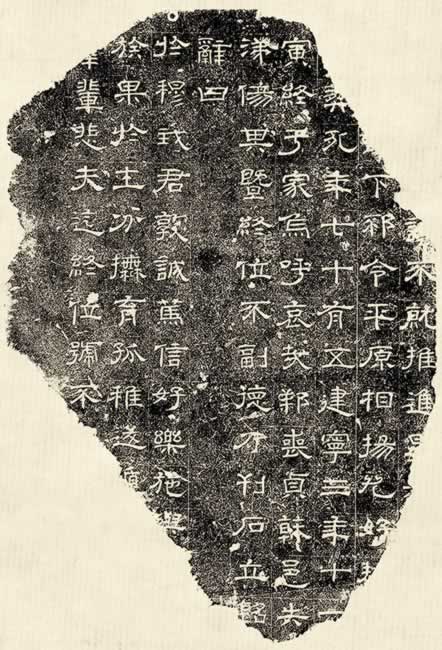 不就推進
下邳令平原相揚兗
死年七十有五建寧三年十一
寅終于家烏呼哀哉邦喪貞榦邑失
傷其暨終位不副德乃刊石立銘
辭曰
於穆我君敦誠篤信好樂施與
於果於主育孤稚遂
輩悲夫迄終位號不